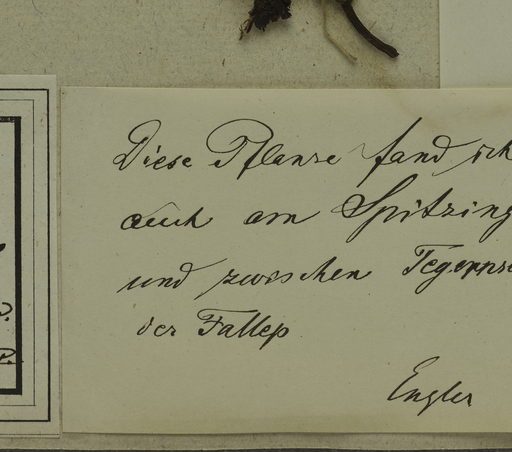 Diese Pflanze fand ich
auch am Spitzing
und zwischen Tegernse
der Fallep
Engler